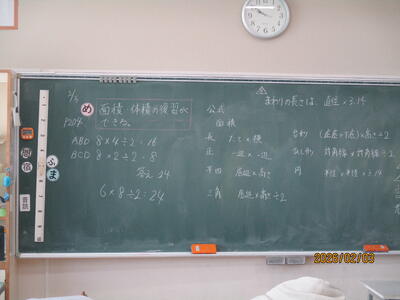 2/3
め 面積・体積の復習ができる。
P204
ABD 8×4÷2=16
BCD 8×2÷2=8
答え 24
6×8÷2=24
まわりの長さは、直径×3.14
公式
面積
長 たて×横
正 一辺×一辺
平四 底辺×高さ
三角 底辺×高さ÷2
台形 (上底+下底)×高さ÷2
ひし形 対角線×対角線÷2
円 半径×半径×3.14
問
宿
ふ
ま
音読
2026/02/03